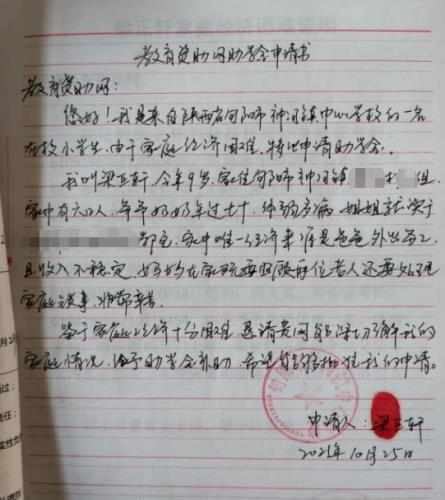 教育资助网助学金申请书
教育资助网：
您好！我是来自陕西省旬阳市神河镇中心学校的一名
在校小学生，由于家庭经济困难，特此申请助学金。
我叫梁正轩，今年9岁，家住旬阳市神河镇 村 组，
家中有六口人，爷爷奶奶年过七十，体弱多病，姐姐就读于
家中唯一经济来源是爸爸外出务工，
且收入不稳定，妈妈在家既要照顾两位老人还要处理
家庭琐事，非常辛苦。
鉴于家庭经济十分困难，恳请贵网能深切了解我的
家庭情况，给予助学金补助，希望能够批准我的申请。
申请人：梁正轩
2025年10月25日